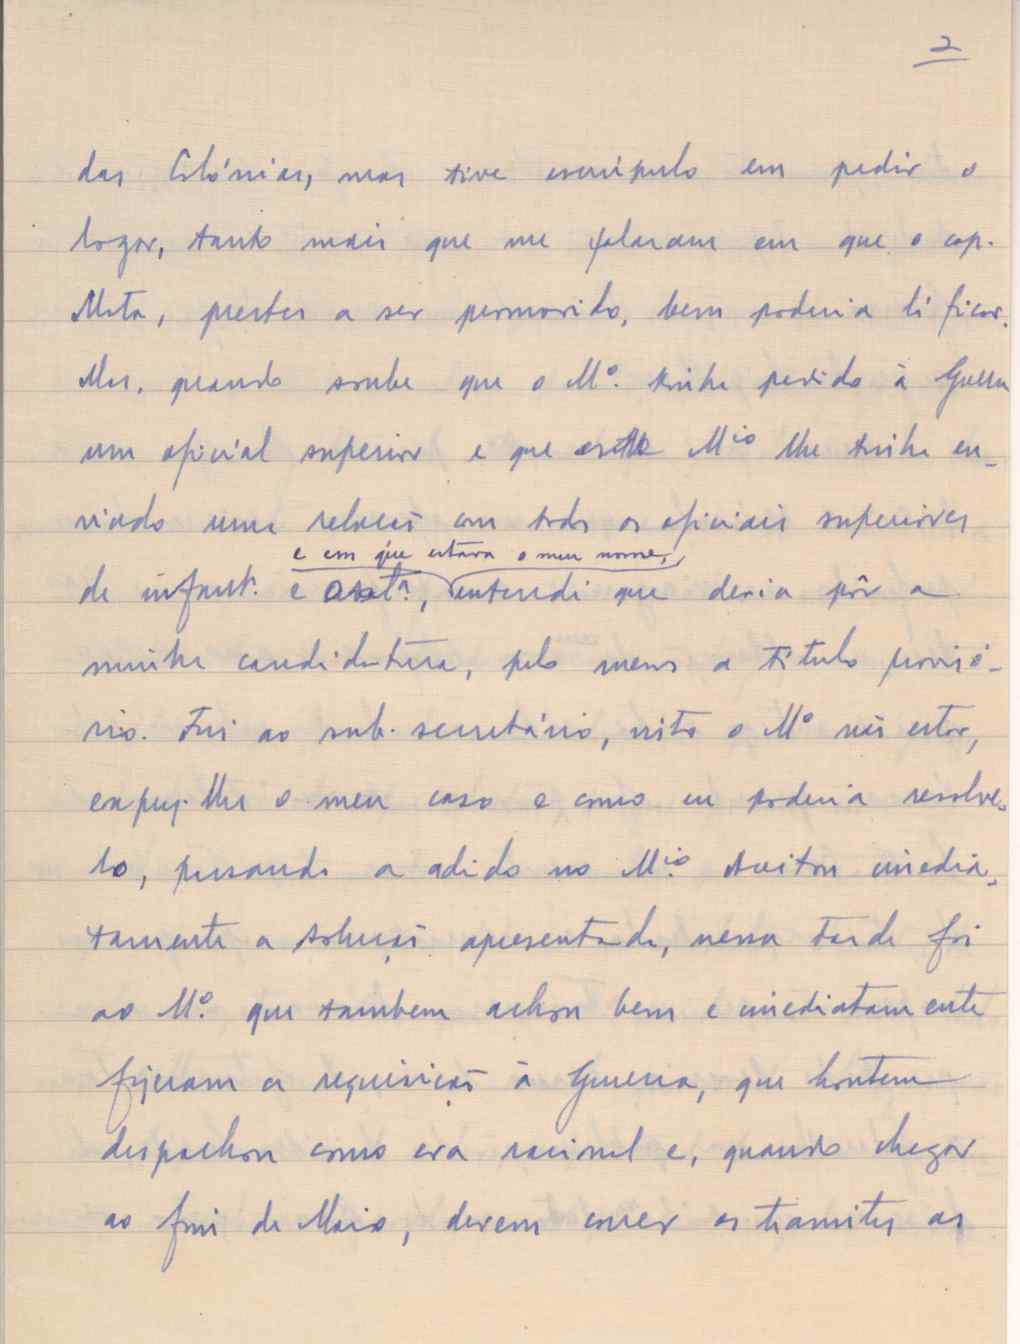 2
das Colónias, mas tive escrúpulo em pedir o
logar, tanto mais que me falaram em que o cap.
Mota, prestes a ser promovido, bem poderia lá ficar.
Mas, quando soube que o Mº. tinha pedido à Guerra
um oficial superior e que este Mio lhe tinha en-
viado uma relação com todos os oficiais superiores
e em que estava o meu nome,
de infant. e art.ª, entendi que devia pôr a
minha candidatura, pelo menos a título provisó-
rio. Fui ao sub-secretário, visto o Mº não estar,
expuz-lhe o meu caso e como eu poderia resolve-
lo, passando a adido no Mio. Aceitou imedia-
tamente a solução apresentada, nessa tarde foi
ao Mº. que tambem achou bem e imediatamente
fizeram a requisição à Guerra, que hontem
despachou como era racional e, quando chegar
ao fim de Maio, devem correr os tramites as